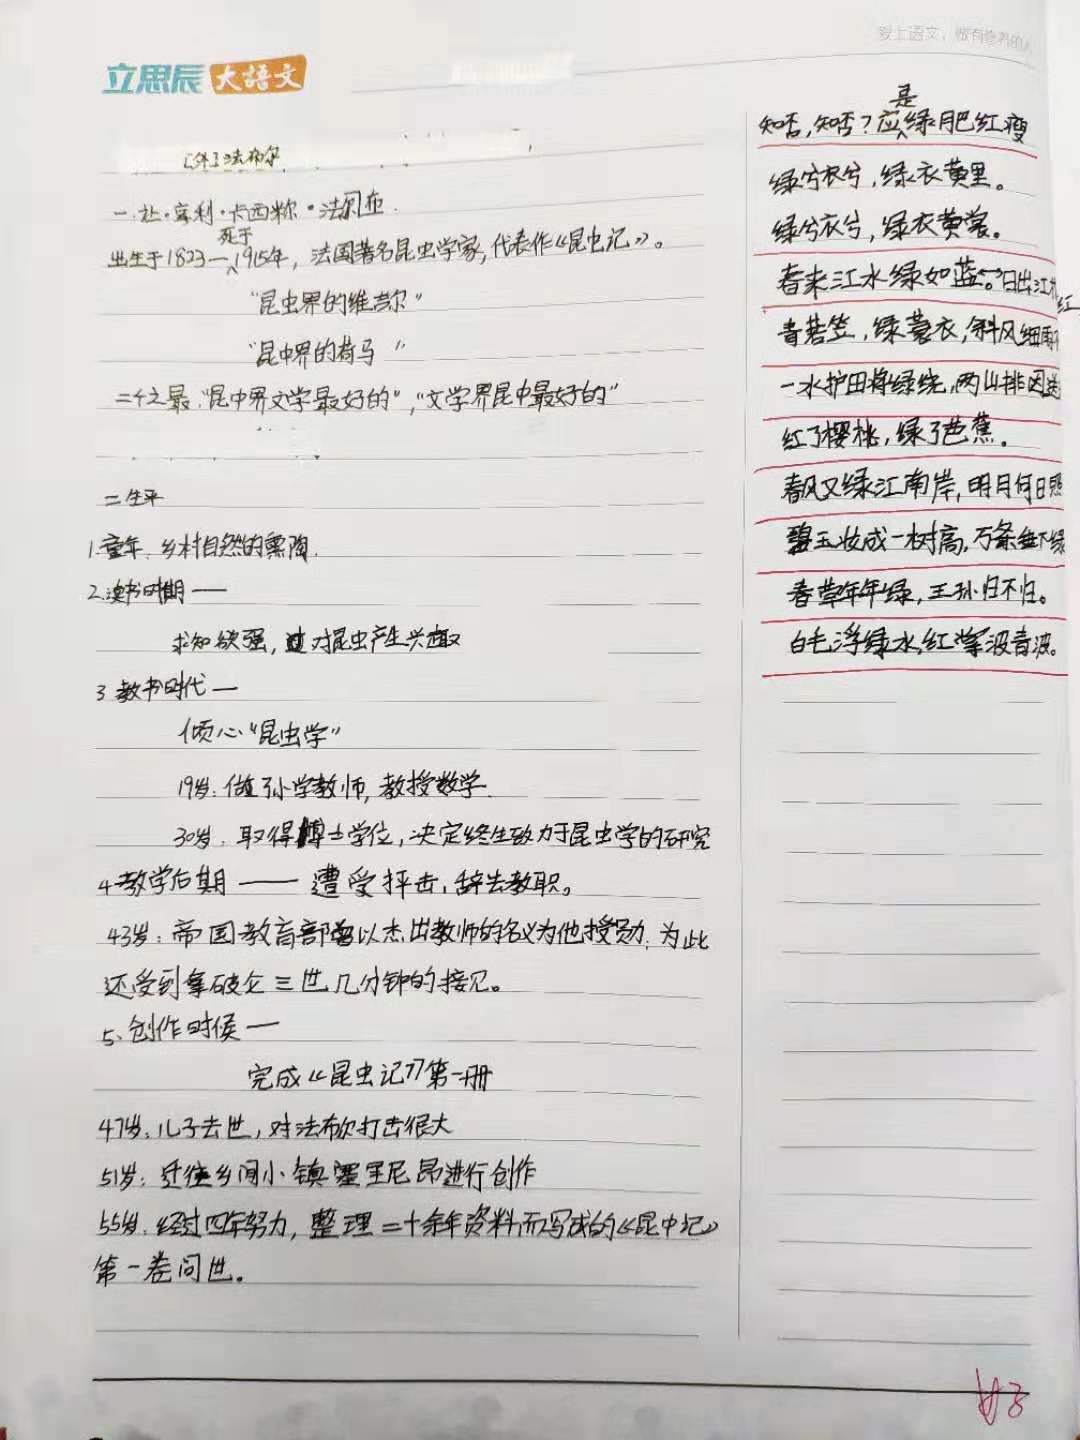 爱上语文，做有修养的人
立思辰大语文
[外]法布尔
一.让·亨利·卡西米尔·法布尔.
死于
出生于1823—1915年，法国著名昆虫学家，代表作《昆虫记》。
“昆虫界的维吉尔”
“昆虫界的荷马”
二个之最.“昆虫界文学最好的”，“文学界昆虫最好的”
二生平
1.童年.乡村自然的熏陶.
2.读书时期——
求知欲强，对昆虫产生兴趣
3.教书时代—
倾心“昆虫学”
19岁：做小学教师，教授数学.
30岁.取得博士学位，决定终生致力于昆虫学的研究
4.教学后期——遭受抨击，辞去教职。
43岁：帝国教育部曾以杰出教师的名义为他授勋；为此
还受到拿破仑三世几分钟的接见。
5、创作时候—
完成《昆虫记》第一册
47岁：儿子去世，对法布尔打击很大
51岁：迁往乡间小镇塞里尼昂进行创作
55岁.经过四年努力，整理二十余年资料而写成的《昆虫记》
第一卷问世。
是
知否，知否？应绿肥红瘦
绿兮衣兮，绿衣黄里。
绿兮衣兮，绿衣黄裳。
春来江水绿如蓝。日出江花红
青箬笠，绿蓑衣，斜风细雨不
一水护田将绿绕，两山排闼送
红了樱桃，绿了芭蕉。
春风又绿江南岸，明月何日照
碧玉妆成一树高，万条垂下绿
春草年年绿，王孙归不归。
白毛浮绿水，红掌波青波。